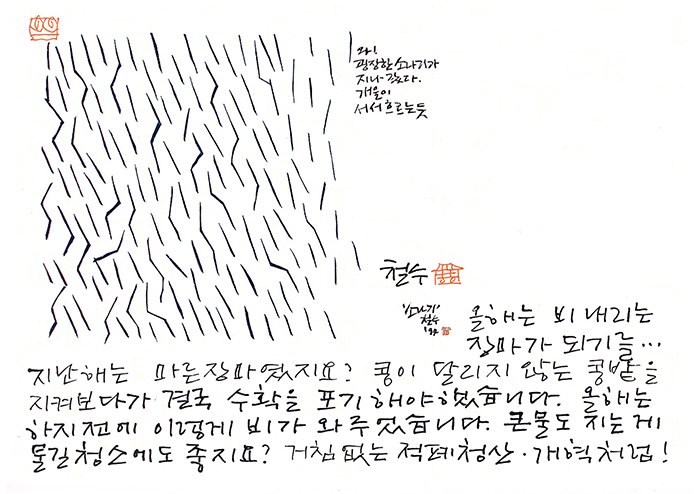 와!
굉장한 소나기가
지나갔다.
개울이
서서 흐르는듯
철수
'소나기'
철수
올해는 비 내리는
장마가 되기를...
지난해는 마른장마였지요? 콩이 달리지 않는 콩밭을
지켜보다가 결국 수확을 포기해야했습니다. 올해는
하지전에 이렇게 비가 와주었습니다. 큰물도 지는게
물길청소에도 좋지요? 거침없는 적폐청산·개혁처럼!